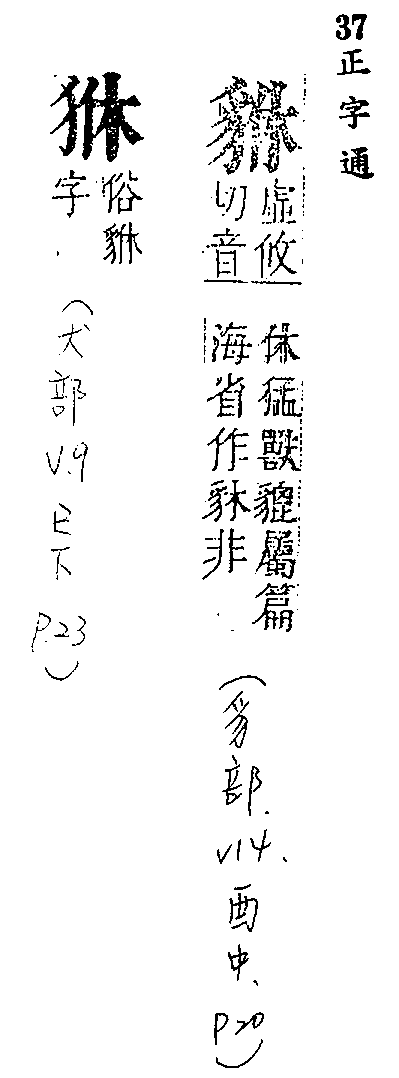 37 正字通
貅
虛攸
切音
休猛獸貔屬篇
海省作非
（豸部. v14. 酉中. P20）
俗貅
字
（犬部 V.9 巳下 P.23）